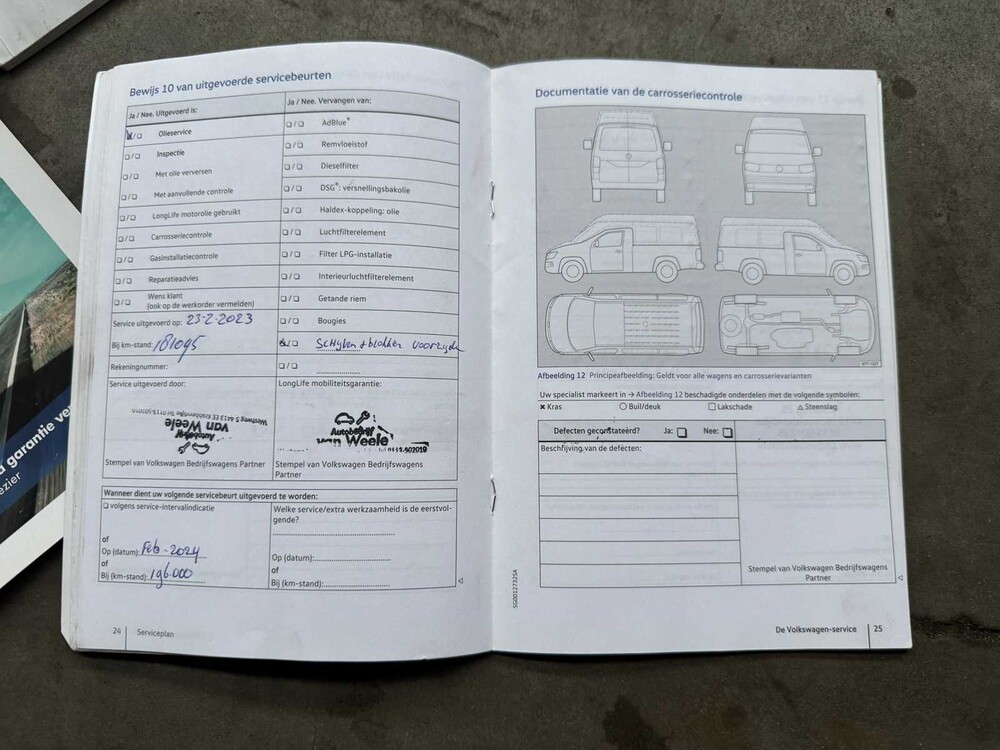 Bewijs 10 van uitgevoerde servicebeurten
Ja / Nee. Uitgevoerd is:
Olieservice
Inspectie
Met olie verversen
Met aanvullende controle
LongLife motorolie gebruikt
Carrosseriecontrole
Gasinstallatiecontrole
Reparatieadvies
Wens klant
(ook op de werkorder vermelden)
Service uitgevoerd op: 23-2-2023
Bij km-stand: 181095
Rekeningnummer:
Service uitgevoerd door:
Westweg 5 4413 EE Krabbendijke
van Weele
Autobedrijf
Stempel van Volkswagen Bedrijfswagens Partner
Ja / Nee. Vervangen van:
AdBlue®
Remvloeistof
Dieselfilter
DSG®: versnellingsbakolie
Haldex-koppeling: olie
Luchtfilterelement
Filter LPG-installatie
Interieurluchtfilterelement
Getande riem
Bougies
Schijven + blokken voorzijde
LongLife mobiliteitsgarantie:
Autobedrijf
van Weele
Stempel van Volkswagen Bedrijfswagens
Partner
Wanneer dient uw volgende servicebeurt uitgevoerd te worden:
volgens service-intervalindicatie
of
Op (datum): Feb-2024
of
Bij (km-stand): 196.000
Welke service/extra werkzaamheid is de eerstvol-
gende?
Op (datum):
of
Bij (km-stand):
24 Serviceplan
Documentatie van de carrosseriecontrole
Afbeelding 12 Principeafbeelding: Geldt voor alle wagens en carrosserievarianten
Uw specialist markeert in → Afbeelding 12 beschadigde onderdelen met de volgende symbolen:
× Kras ○ Buil/deuk □ Lakschade △ Steenslag
Defecten geconstateerd? Ja: Nee:
Beschrijving van de defecten:
Stempel van Volkswagen Bedrijfswagens
Partner
SG0012732SA
De Volkswagen-service 25
a garantie ve
ezier